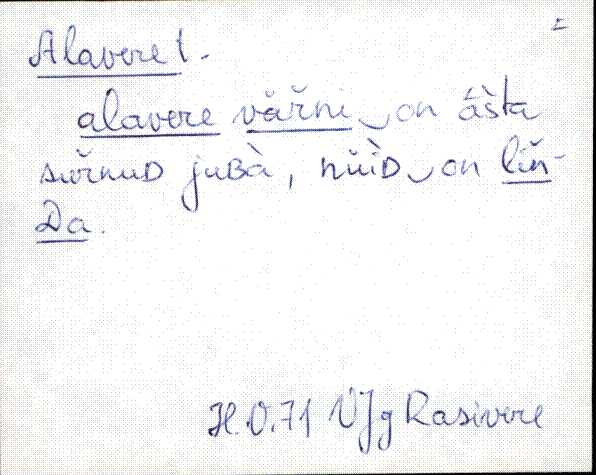 Alavere t.
alavere vär̆ni‿on áŝta
sur̆nuD juBà, nŭìD‿on lin̆-
Da.
H.O.71 VJg Rasivere